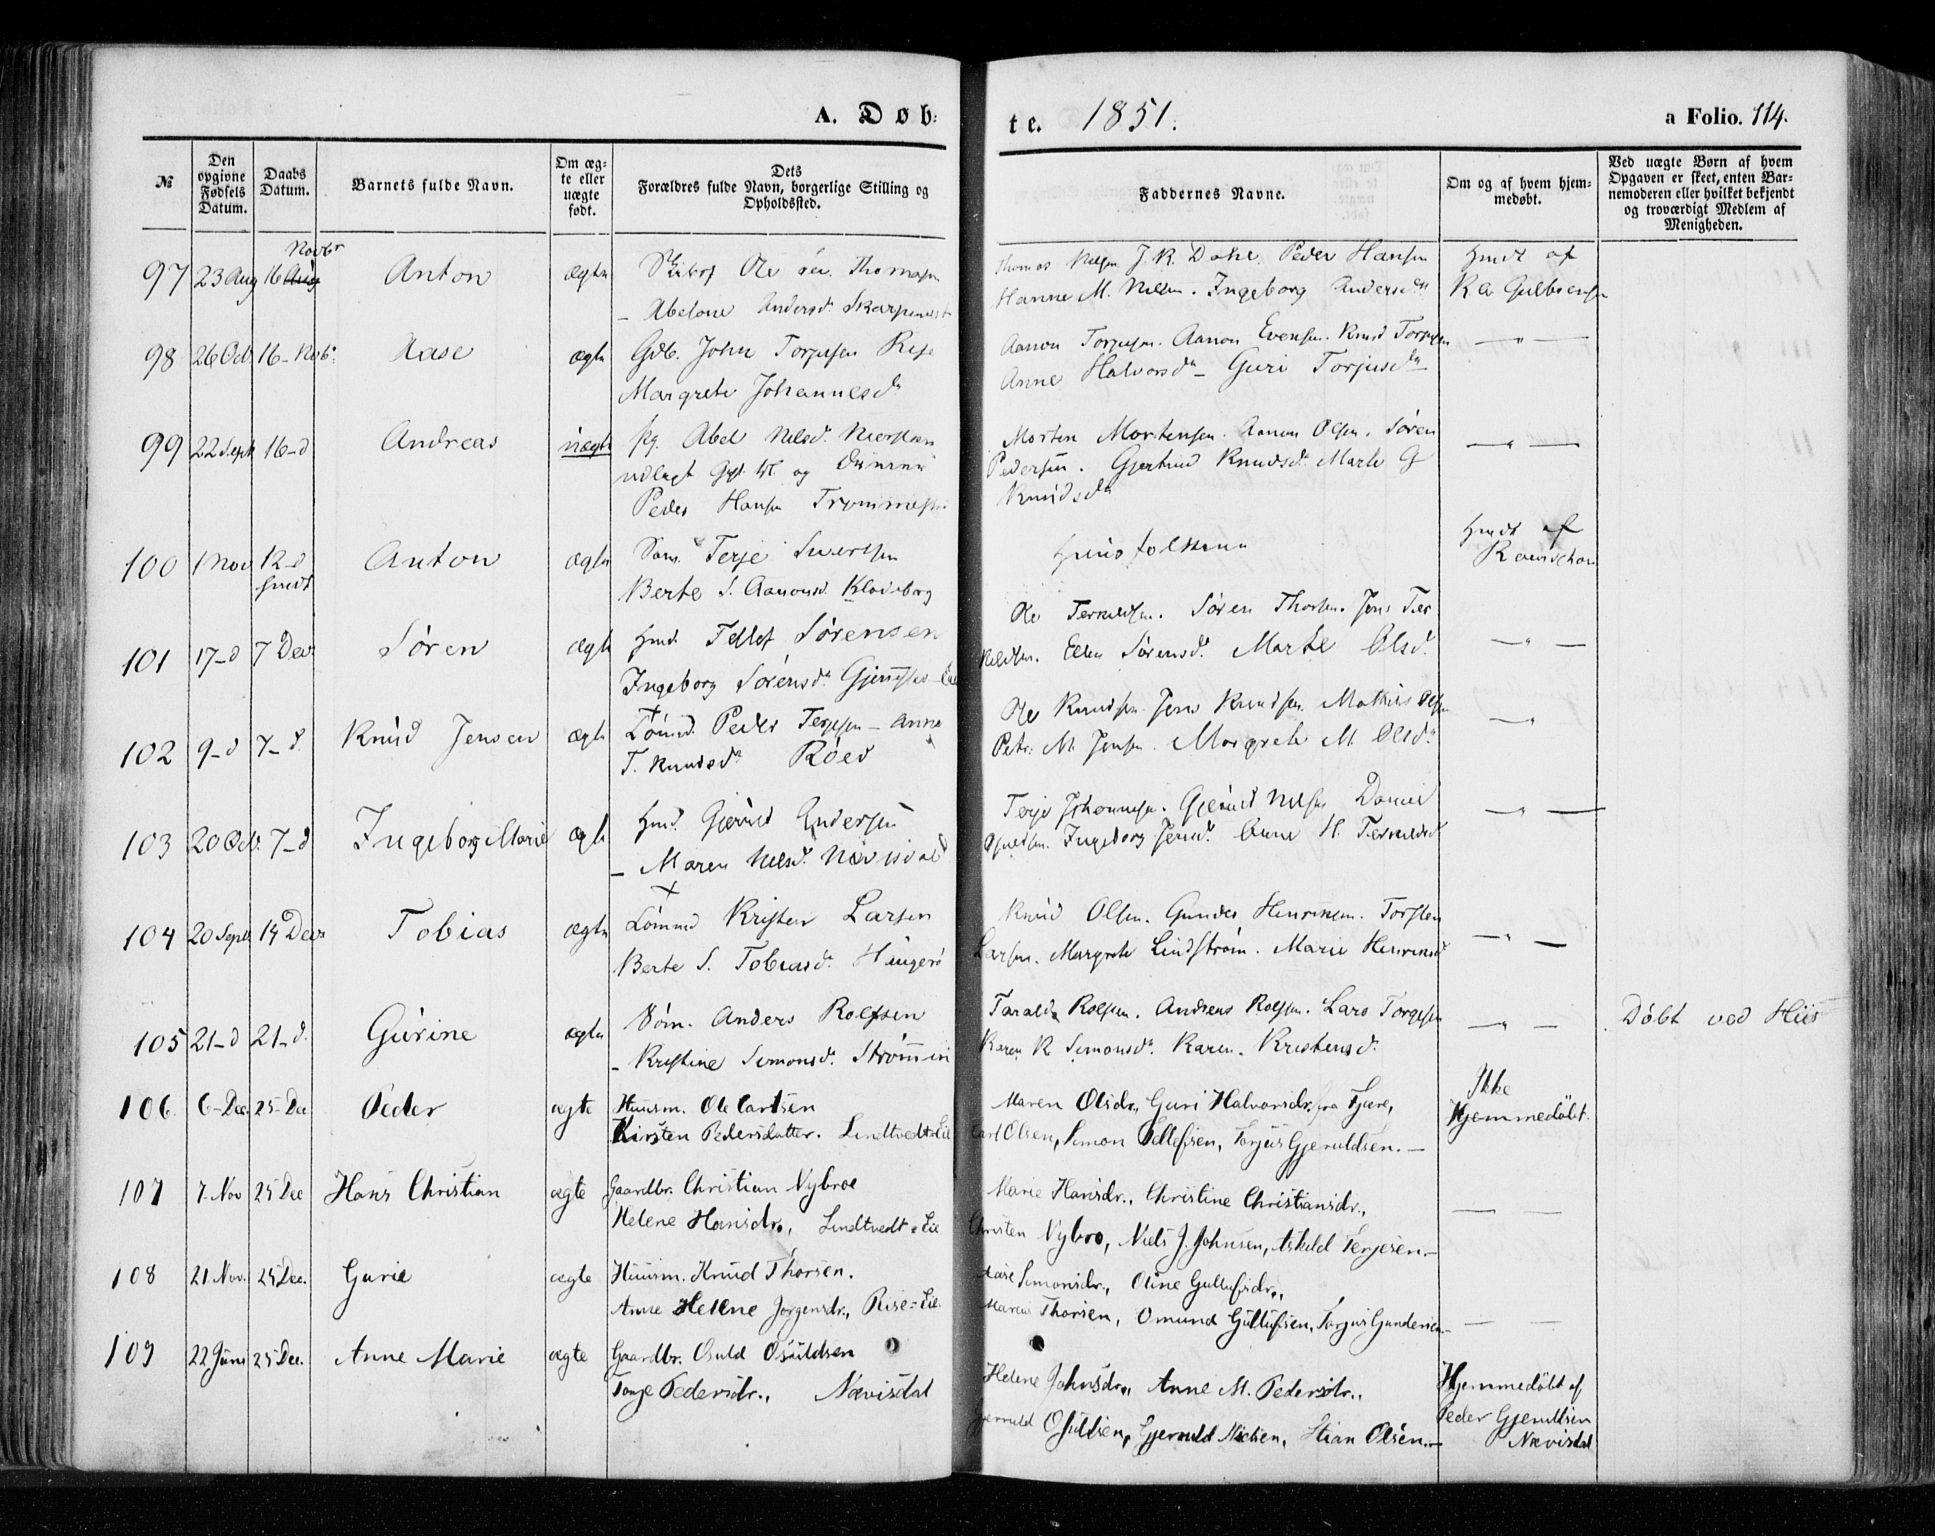 A. Døb:
te. 1851.
a Folio. 114.
№
Den opgivne Fødsels Datum.
Daabs Datum.
Barnets fulde Navn.
Om ægte eller uægte født.
Dets Forældres fulde Navn, borgerlige Stilling og Opholdssted.
Faddernes Navne.
Om og af hvem hjemmedøbt.
Ved uægte Børn af hvem Opgaven er skeet, enten Barnemoderen eller hvilket bekjendt og troværdigt Medlem af Menigheden.
97 23 Aug 16 Novbr Anton ægte
Ole Thomasen
Abelone Andersd.
Thomas J. R. Dahl. Peder Hansen
Hanne M. Nielsen. Ingeborg Andersdtr
Hmdt af
98 26 Octb 16 - Novb. Aase ægte
Gdb. John Torjusen
Margrete Johannesdr
Aanon Torjusen. Aanon Evensen. Knud Torjusen
Anne Halvorsdr - Guri Torjusdr
— " —
99 22 Sept 16-d Andreas uægte
pg. Abel Nilsd.
udlagt
Peder Hansen
Morten Mortensen. Aanon Olsen. Søren
Pedersen. Gjertrud Knudsdr Marte G
Knudsdr
— " —
100 1 Nov 12-d hmdt Anton ægte
Terje Sivertsen
Berte S. Aanonsd. Klodeborg
Hmdt af
101 17-d 7 Decr Søren ægte
Hmd. Tellef Sørensen
Ingeborg Sørensdr
Ole Terkeldsen. Søren Thorsen. Jens Ter
keldsen. Ellen Sørensd. Marte Olsd.
— " —
102 9-d 7-d. Knud Jensen ægte
Peder Terjesen - Anne
T. Knudsdr Röed
Ole Knudsen. Jens Knudsen Mathias Olsen
Petr: M. Jensen. Margrete M. Olsdr
— " —
103 20 Octb. 7-d Ingeborg Marie ægte
Hmd. Gjeruld Andersen
- Maren Nilsd. Nævisdal
Terje Johannesen. Gjeruld Nilsen Daniel
Ingeborg Jensd. Anne H. Terkeldsd
— " —
104 20 Septb. 14 Decr Tobias ægte
Kristen Larsen
Berte S. Tobiasdr
Knud Olsen. Gunder Henriksen. Torsten
Larsen. Margrete Lindstrøm. Marie Henriksd
— " —
105 21-d 21-d. Gurine ægte
Söm. Anders Rolfsen
- Kristine Simonsdr
Tarald Rolfsen. Andreas Rolfsen. Lars Torgesen
Karen K Simonsdr. Karen. Kristensd.
— " —
Døbt ved Hiis
106 6-Dec 25-Dec Peder ægte
Huusm. Ole Carlsen
Kirsten Pedersdatter. Lindtvedt=Eie
Maren Olsdr, Guri Halvorsdr. fra Fjære,
Carl Olsen, Simon Tellefsen, Torjus Gjeruldsen. —
Ikke
Hjemmedøbt.
107 7. Nov 25 Dec Hans Christian ægte
Gaardbr. Christian Nybroe
Helene Hansdr., Lindtvedt=Eie
Marie Hansdr., Christine Christiansdr.,
Christen Nybro, Niels J. Johnsen, Askild Terjesen. —
— —
108 21 Nov. 25 Dec. Gurie ægte
Huusm. Knud Thorsen.
Anne Helene Jørgensdr., Rise=Eie.
Aase Simonsdr., Oline Gullufsdr.,
Marcus Thorsen, Omund Gullufsen, Torjus Gundersen. —
— —
109 22 Juni 25 Dec. Anne Marie ægte
Gaardbr. Osuld Osuldsen
Tonje Pedersdr., Nævisdal
Helene Johnsdr., Anne M. Pedersdr.,
Gjeruld Osuldsen, Gjeruld Nielsen, Stian Olsen. —
Hjemmedøbt af
Peder Gjeruldsen
Nævisdal